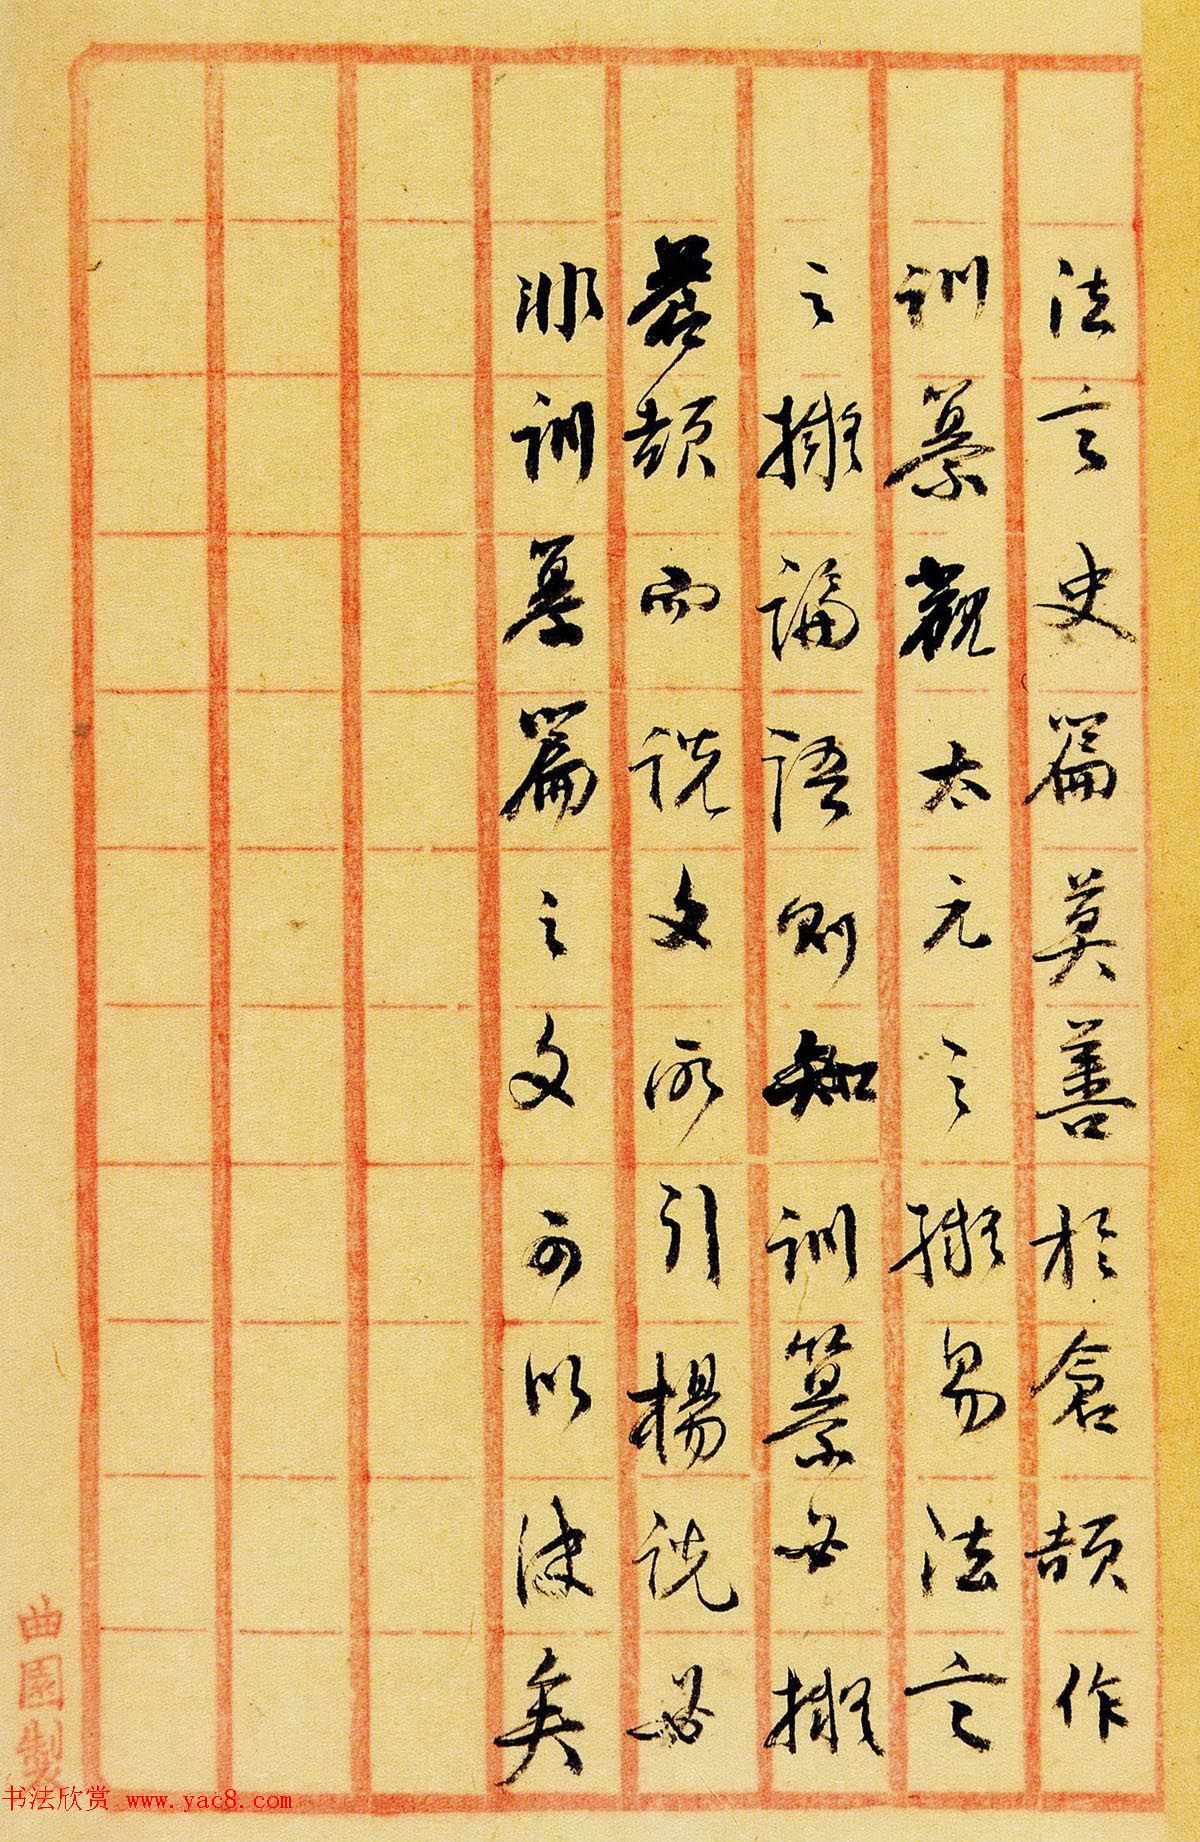 法言史篇莫善於倉頡作
訓纂觀太元之擬易法言
之擬論語則知訓纂必擬
蒼頡而說文所引楊說必
非訓纂篇之文可以決矣
曲園製
书法欣赏 www.yac8.com